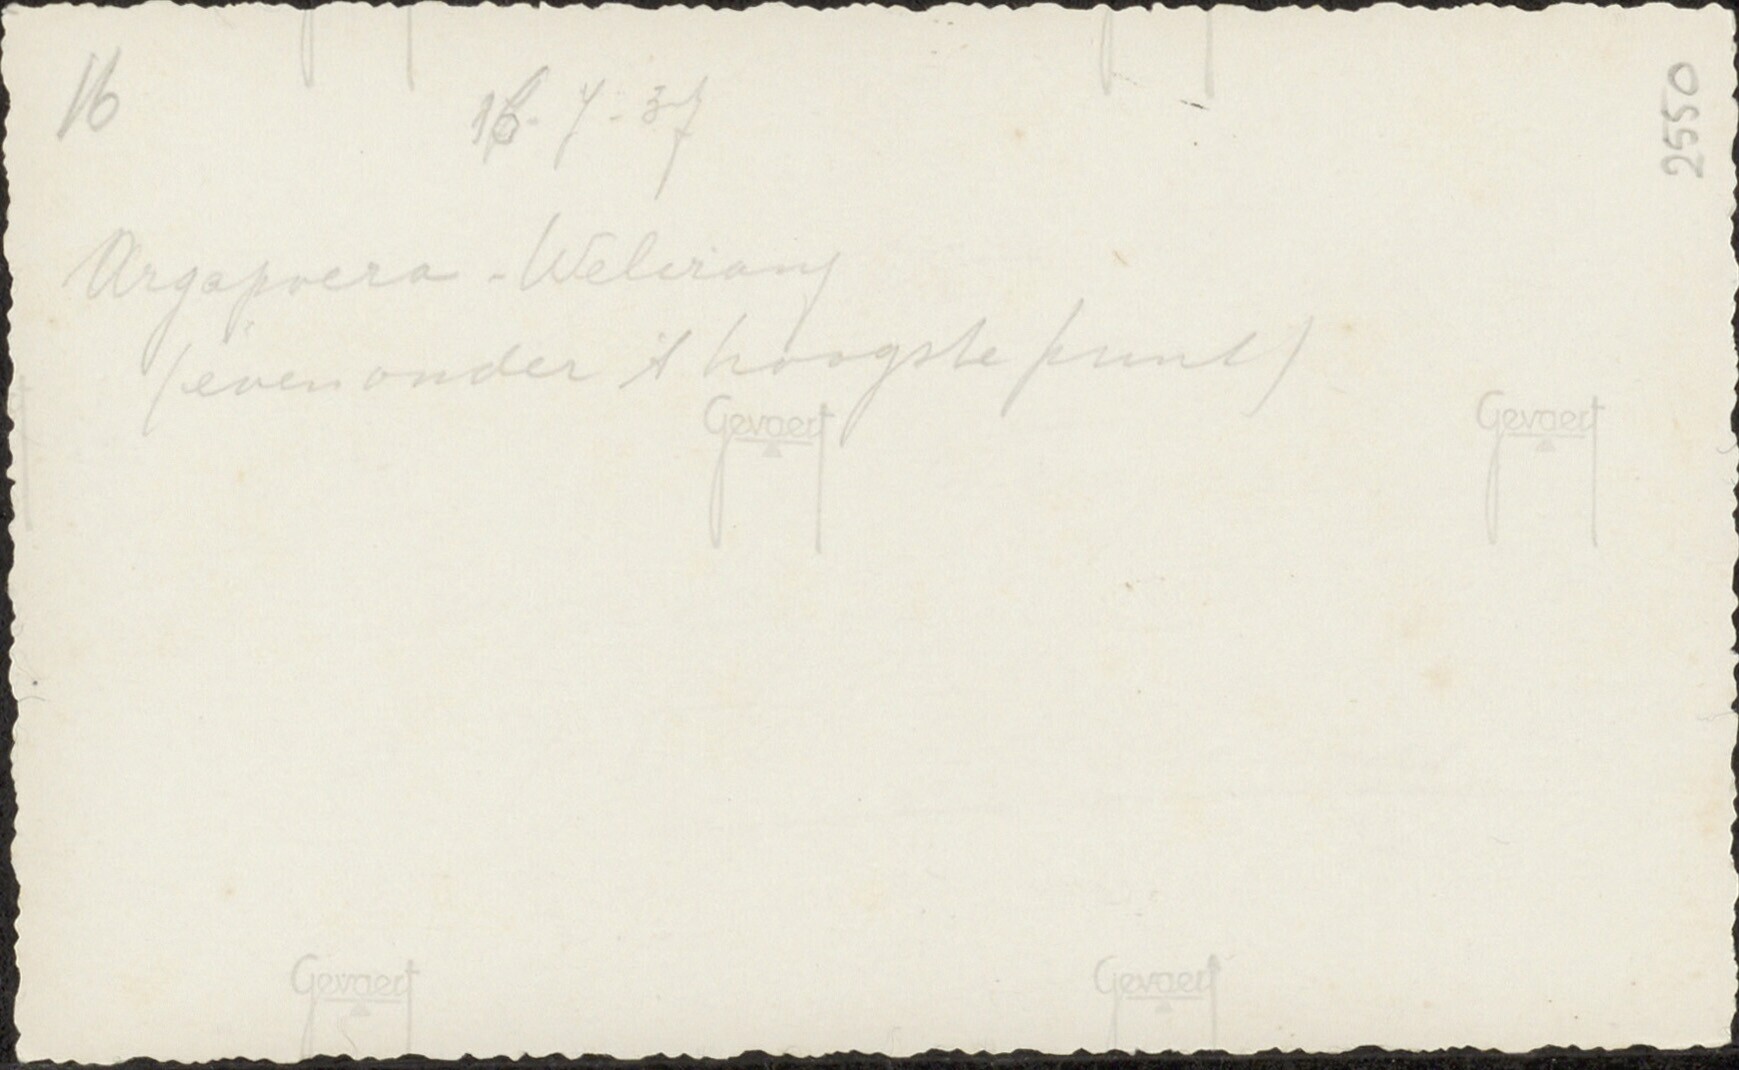 16
16-7-37
2550
Argapoera - Welirang
(even onder 't hoogste punt)
Gevaert
Gevaert
Gevaert
Gevaert